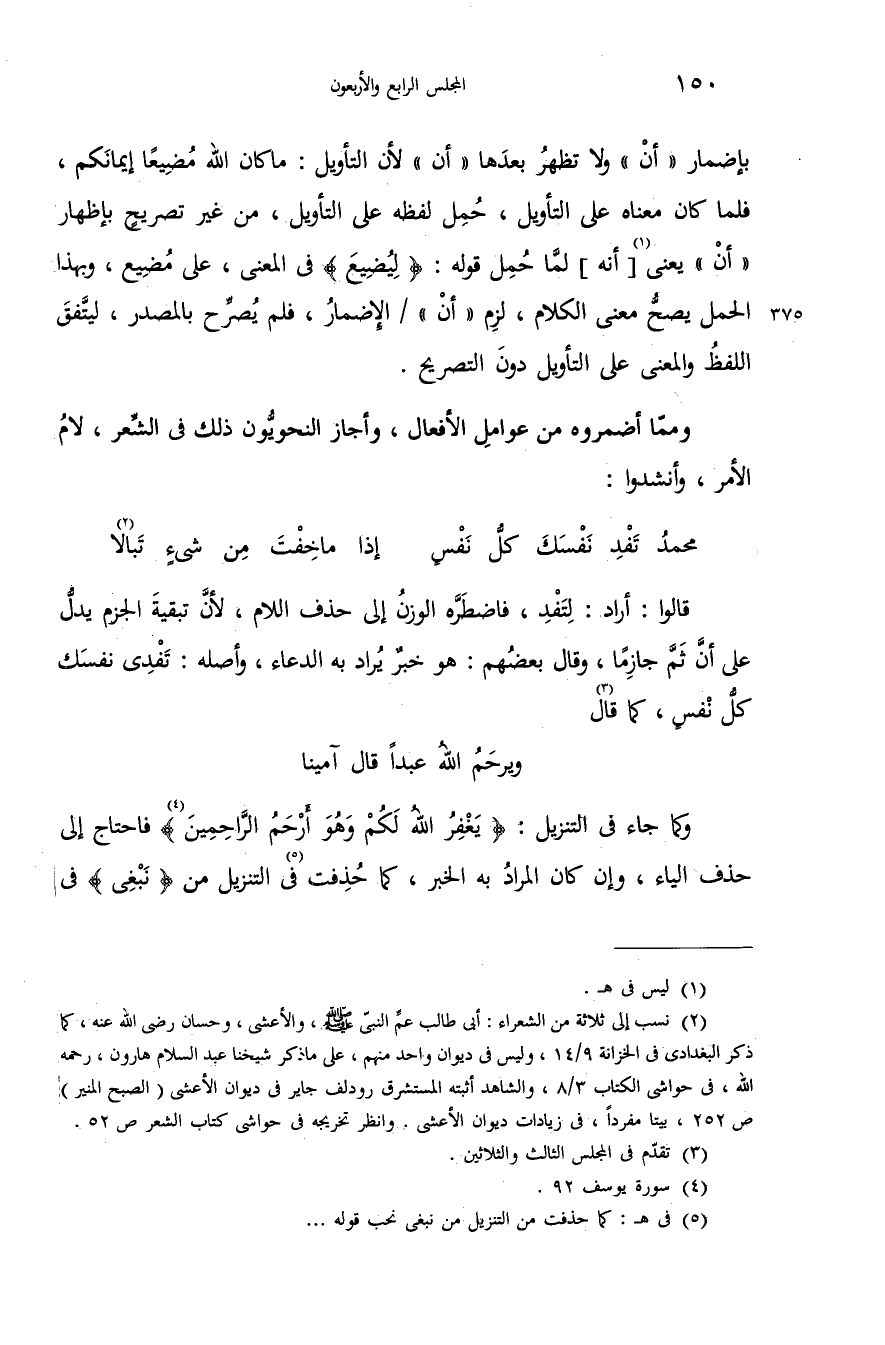 ١٥٠
المجلس الرابع والأربعون
بإضمار « أنْ » ولا تظهرُ بعدَها « أن » لأن التأويل : ماكان الله مُضِيعًا إيمانَكم ،
فلما كان معناه على التأويل ، حُمِل لفظه على التأويل ، من غير تصريحٍ بإظهار
« أنْ » يعنى(١) [ أنه ] لمَّا حُمِل قوله : ﴿ لِيُضِيعَ ﴾ فى المعنى ، على مُضِيع ، وبهذا
٣٧٥ الحمل يصحُّ معنى الكلام ، لزِم « أنْ » / الإِضمارُ ، فلم يُصرِّح بالمصدر ، ليتَّفقَ
اللفظُ والمعنى على التأويل دونَ التصريح .
وممّا أضمروه من عواملِ الأفعال ، وأجاز النحويُّون ذلك فى الشِّعر ، لامُ
الأمر ، وأنشدوا :
محمدُ تَفْدِ نَفْسَكَ كلُّ نَفْسٍ إذا ماخِفْتَ مِن شىءٍ تَبالَا(٢)
قالوا : أراد : لِتَفْدِ ، فاضطَرَّه الوزنُ إلى حذف اللام ، لأنَّ تبقيةَ الجزم يدلُّ
على أنَّ ثَمَّ جازِمًا ، وقال بعضُهم : هو خبرٌ يُراد به الدعاء ، وأصله : تَفْدِى نفسَك
كلُّ نْفسٍ ، كما قال(٣)
ويرحَمُ اللهُ عبداً قال آمينا
وكما جاء فى التنزيل : ﴿ يَغْفِرُ اللهُ لَكُمْ وَهُوَ أَرْحَمُ الرَّاحِمِينَ ﴾(٤) فاحتاج إلى
حذف الياء ، وإن كان المرادُ به الخبر ، كما حُذِفت فى(٥) التنزيل من ﴿ نَبْغِى ﴾ فى
(١) ليس فى هـ .
(٢) نسب إلى ثلاثة من الشعراء : أبى طالب عمِّ النبىّ ﷺ ، والأعشى ، وحسان رضى الله عنه ، كما
ذكر البغدادى فى الخزانة ١٤/٩ ، وليس فى ديوان واحد منهم ، على ماذكر شيخنا عبد السلام هارون ، رحمه
الله ، فى حواشى الكتاب ٨/٣ ، والشاهد أثبته المستشرق رودلف جاير فى ديوان الأعشى ( الصبح المنير )
ص ٢٥٢ ، بيتا مفرداً ، فى زيادات ديوان الأعشى . وانظر تخريجه فى حواشى كتاب الشعر ص ٥٢ .
(٣) تقدّم فى المجلس الثالث والثلاثين .
(٤) سورة يوسف ٩٢ .
(٥) فى هـ : كما حذفت من التنزيل من نبغى نحب قوله ...